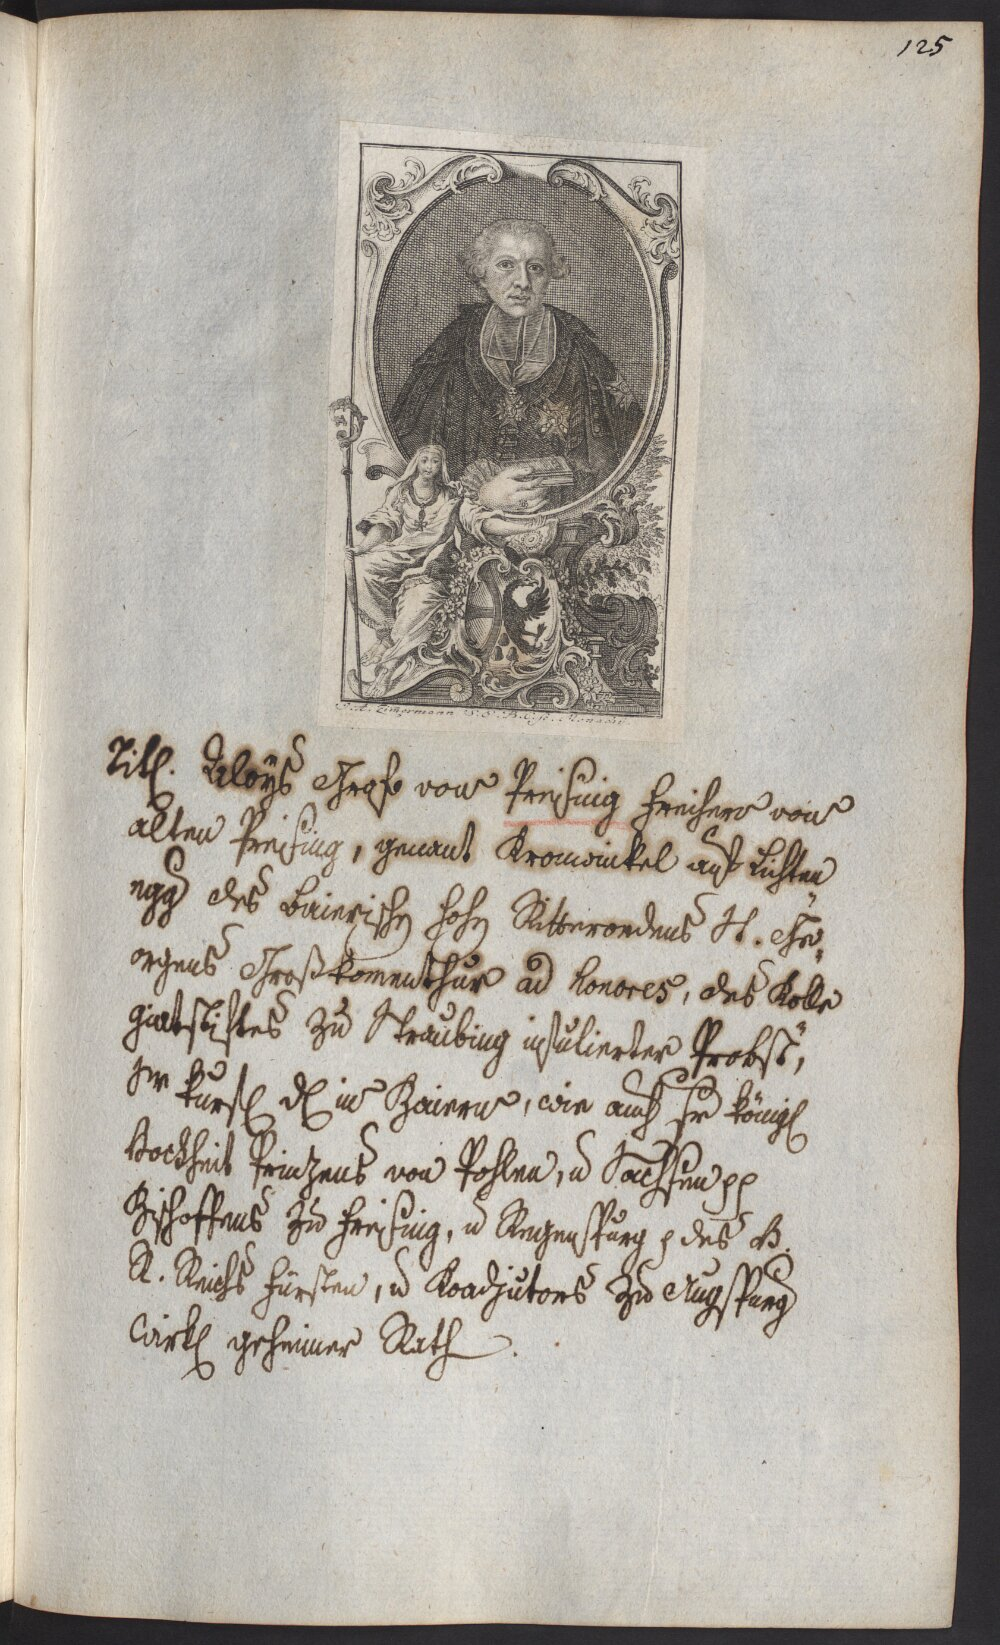 125
J. A. Zimermann S. E. B. C. sc. Monachi
Titl. Aloÿs Graf von Preÿsing Freiherr von
alten Preÿsing, genant Kronwinkel auf Lichten„
egg des baierischn hohn Ritterordens St. Ge„
orgens Großkomenthur ad honores, des Kolle„
giatstiftes zu Straubing infulierter Probst,
Sr kurfl dl in Baiern, wie auch Sr königl
Hochheit Prinzens von Pohlen, u Sachsen pp
Bischoffens zu Freÿsing, u Regenspurg p des H.
R. Reichs Fürsten, u Koadjutors zu Augspurg
wirkl geheimer Rath.